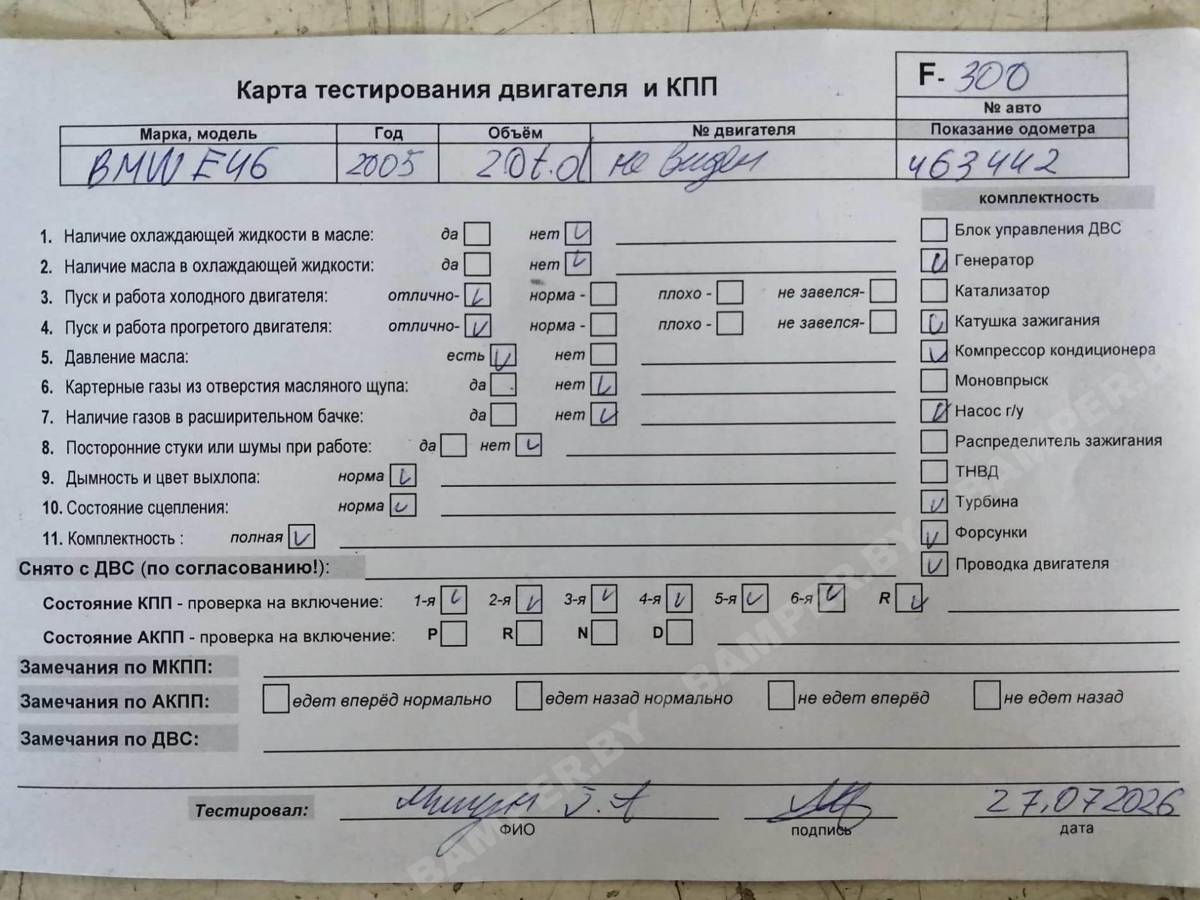 Карта тестирования двигателя и КПП
F- 300
№ авто
Марка, модель Год Объём № двигателя Показание одометра
BMW E46 2005 2.0t.d не виден 463442
комплектность
1. Наличие охлаждающей жидкости в масле: да нет
2. Наличие масла в охлаждающей жидкости: да нет
3. Пуск и работа холодного двигателя: отлично- норма - плохо - не завелся-
4. Пуск и работа прогретого двигателя: отлично- норма - плохо - не завелся-
5. Давление масла: есть нет
6. Картерные газы из отверстия масляного щупа: да нет
7. Наличие газов в расширительном бачке: да нет
8. Посторонние стуки или шумы при работе: да нет
9. Дымность и цвет выхлопа: норма
10. Состояние сцепления: норма
11. Комплектность : полная
Блок управления ДВС
Генератор
Катализатор
Катушка зажигания
Компрессор кондиционера
Моновпрыск
Насос г/у
Распределитель зажигания
ТНВД
Турбина
Форсунки
Проводка двигателя
Снято с ДВС (по согласованию!):
Состояние КПП - проверка на включение: 1-я 2-я 3-я 4-я 5-я 6-я R
Состояние АКПП - проверка на включение: P R N D
Замечания по МКПП:
Замечания по АКПП: едет вперёд нормально едет назад нормально не едет вперёд не едет назад
Замечания по ДВС:
Тестировал: 27.07.2026
ФИО подпись дата
BAMPER.BY
BAMPER.BY
BAMPER.BY
BAMPER.BY